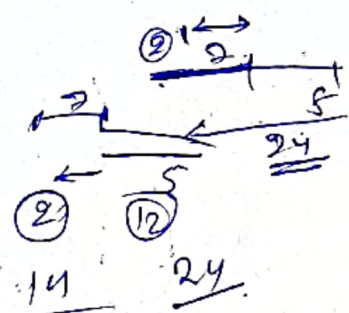 ② 1
2
5
2
24
5
② ⑫
14 24